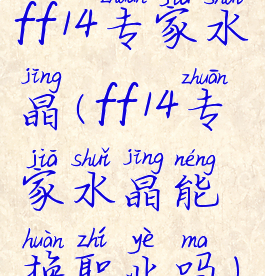 zhuān jiā shuǐ
ff14专家水
jīng zhuān
晶(ff14专
jiā shuǐ jīng néng
家水晶能
huàn zhí yè ma
换职业吗)